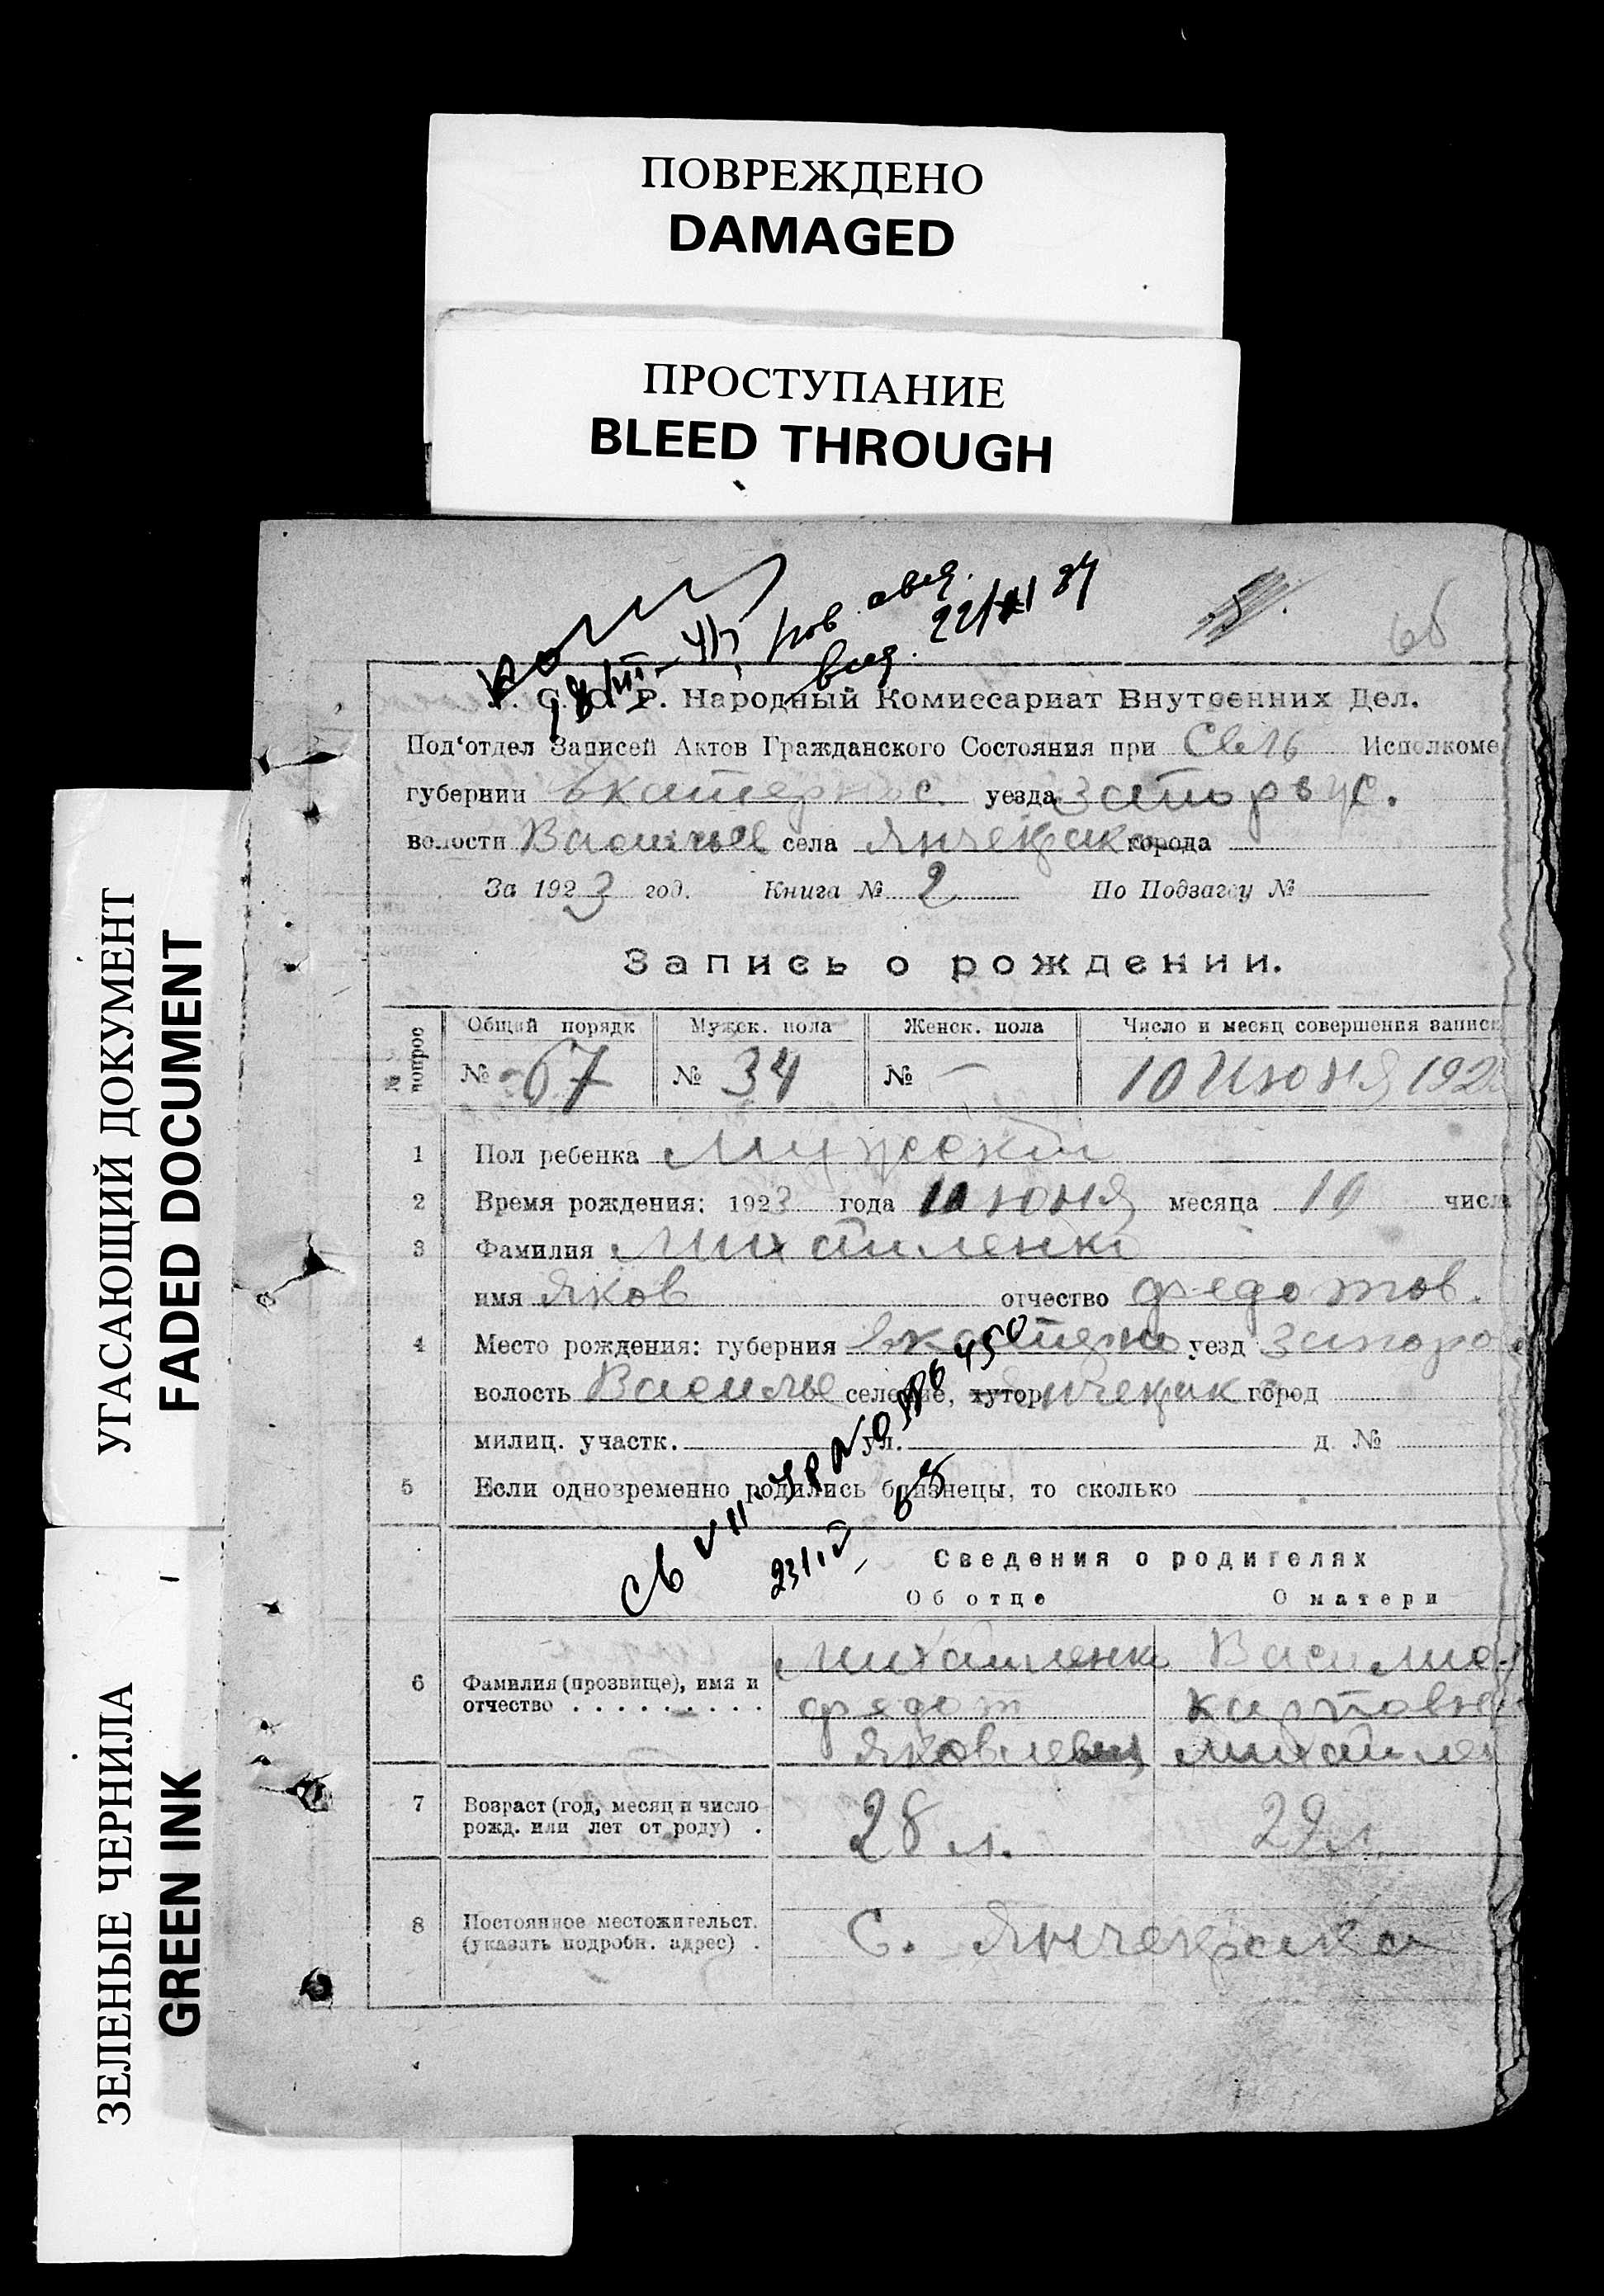 ПОВРЕЖДЕНО
DAMAGED
ПРОСТУПАНИЕ
BLEED THROUGH
УГАСАЮЩИЙ ДОКУМЕНТ
FADED DOCUMENT
ЗЕЛЕНЫЕ ЧЕРНИЛА
GREEN INK
22/XI 84
66
С. Р. Народный Комиссариат Внутренних Дел.
Под‘отдел Записей Актов Гражданского Состояния при Исполкоме
губернии Екатеринос. уезда
волости Василье села Янчекрак города
За 1923 год. Книга № 2 По Подзагсу №
Запись о рождении.
№ вопрос Общий порядк Мужск. пола Женск. пола Число и месяц совершения записи
№ 67 № 34 № — 10 Июня 1923
1 Пол ребенка Мужской
2 Время рождения: 1923 года июня месяца 10 числа
3 Фамилия Михайленко
имя Яков отчество Федотов.
4 Место рождения: губерния Екатерино уезд Запоро
волость Василье селение, хутор Янчекрак город
милиц. участк. ул. д. №
5 Если одновременно родились близнецы, то сколько
Сведения о родителях
Об отце О матери
6 Фамилия (прозвище), имя и отчество
Михайленко
Федот
Яковлевич
Васили
Карповна
Михайле
7 Возраст (год, месяц и число рожд. или лет от роду) . 28 л. 29 л
8 Постоянное местожительст. (указать подробн. адрес) . С. Янчекрака